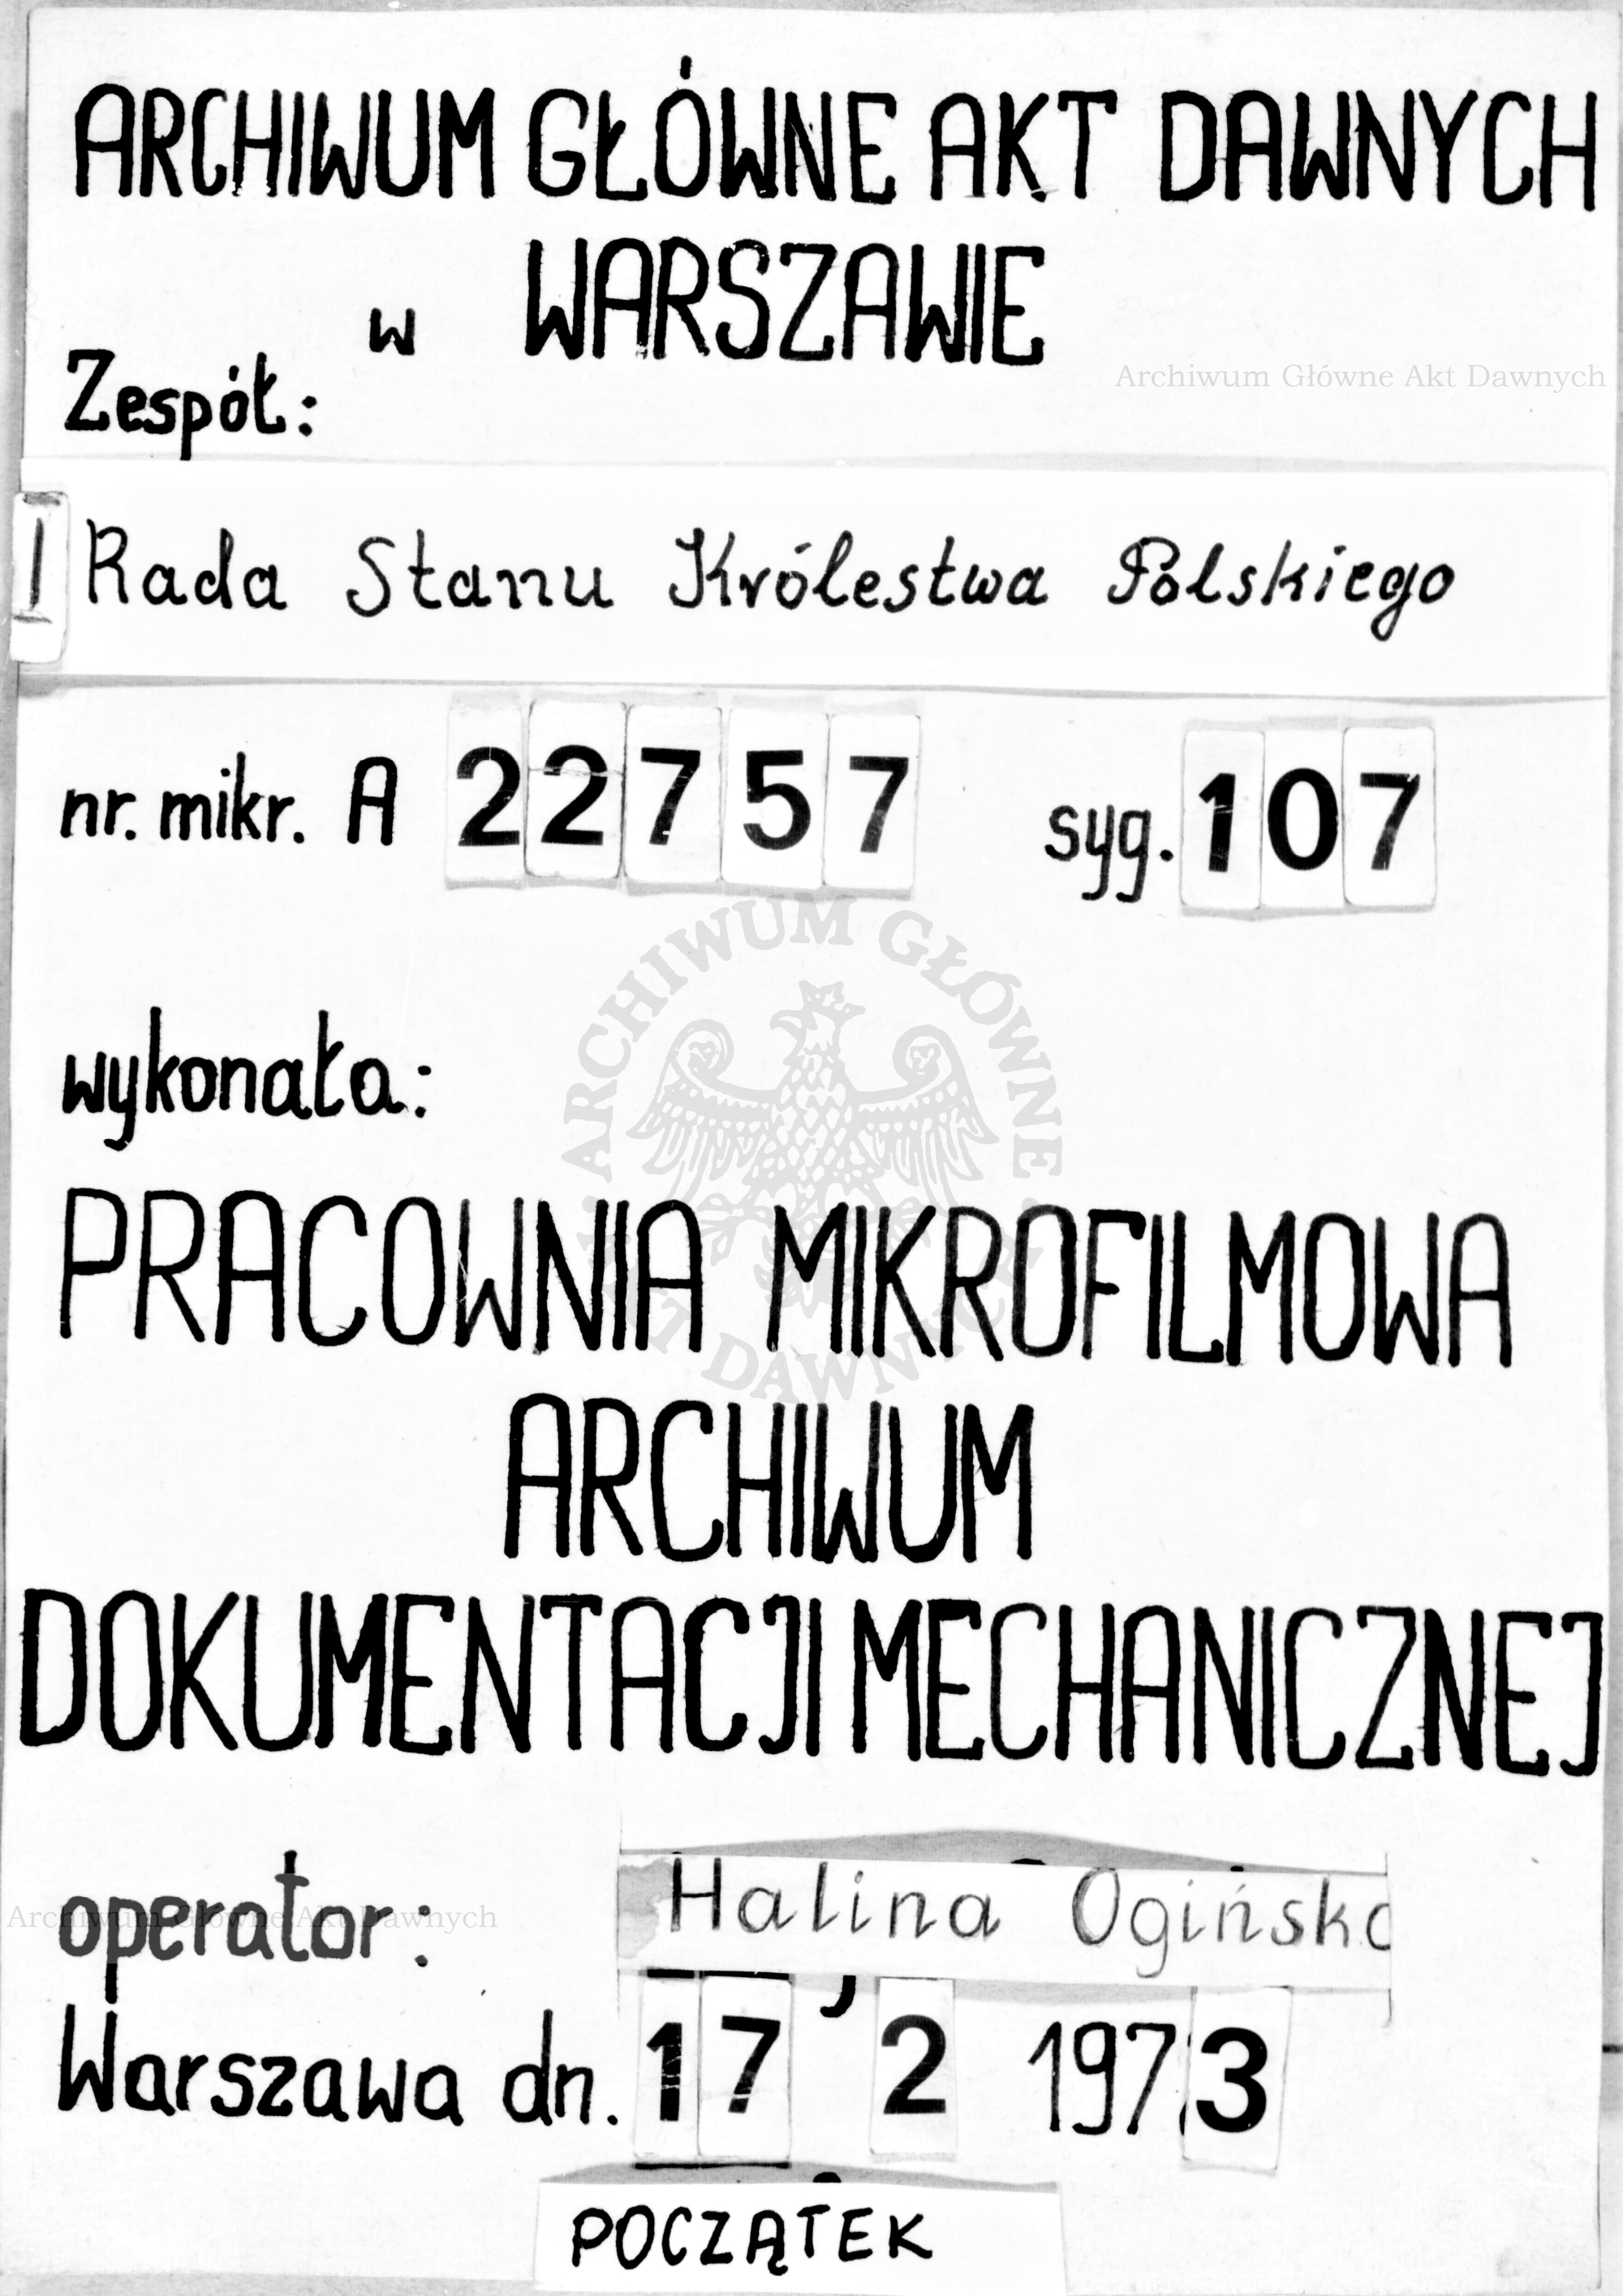 ARCHIWUM GŁÓWNE AKT DAWNYCH
w WARSZAWIE
Archiwum Główne Akt Dawnych
Zespół:
I Rada Stanu Królestwa Polskiego
nr. mikr. A 22757 syg. 107
ARCHIWUM GŁÓWNE AKT DAWNYCH
wykonała:
PRACOWNIA MIKROFILMOWA
ARCHIWUM
DOKUMENTACJI MECHANICZNEJ
operator: Halina Ogińska
Archiwum Główne Akt Dawnych
Warszawa dn. 17 2 1973
POCZĄTEK